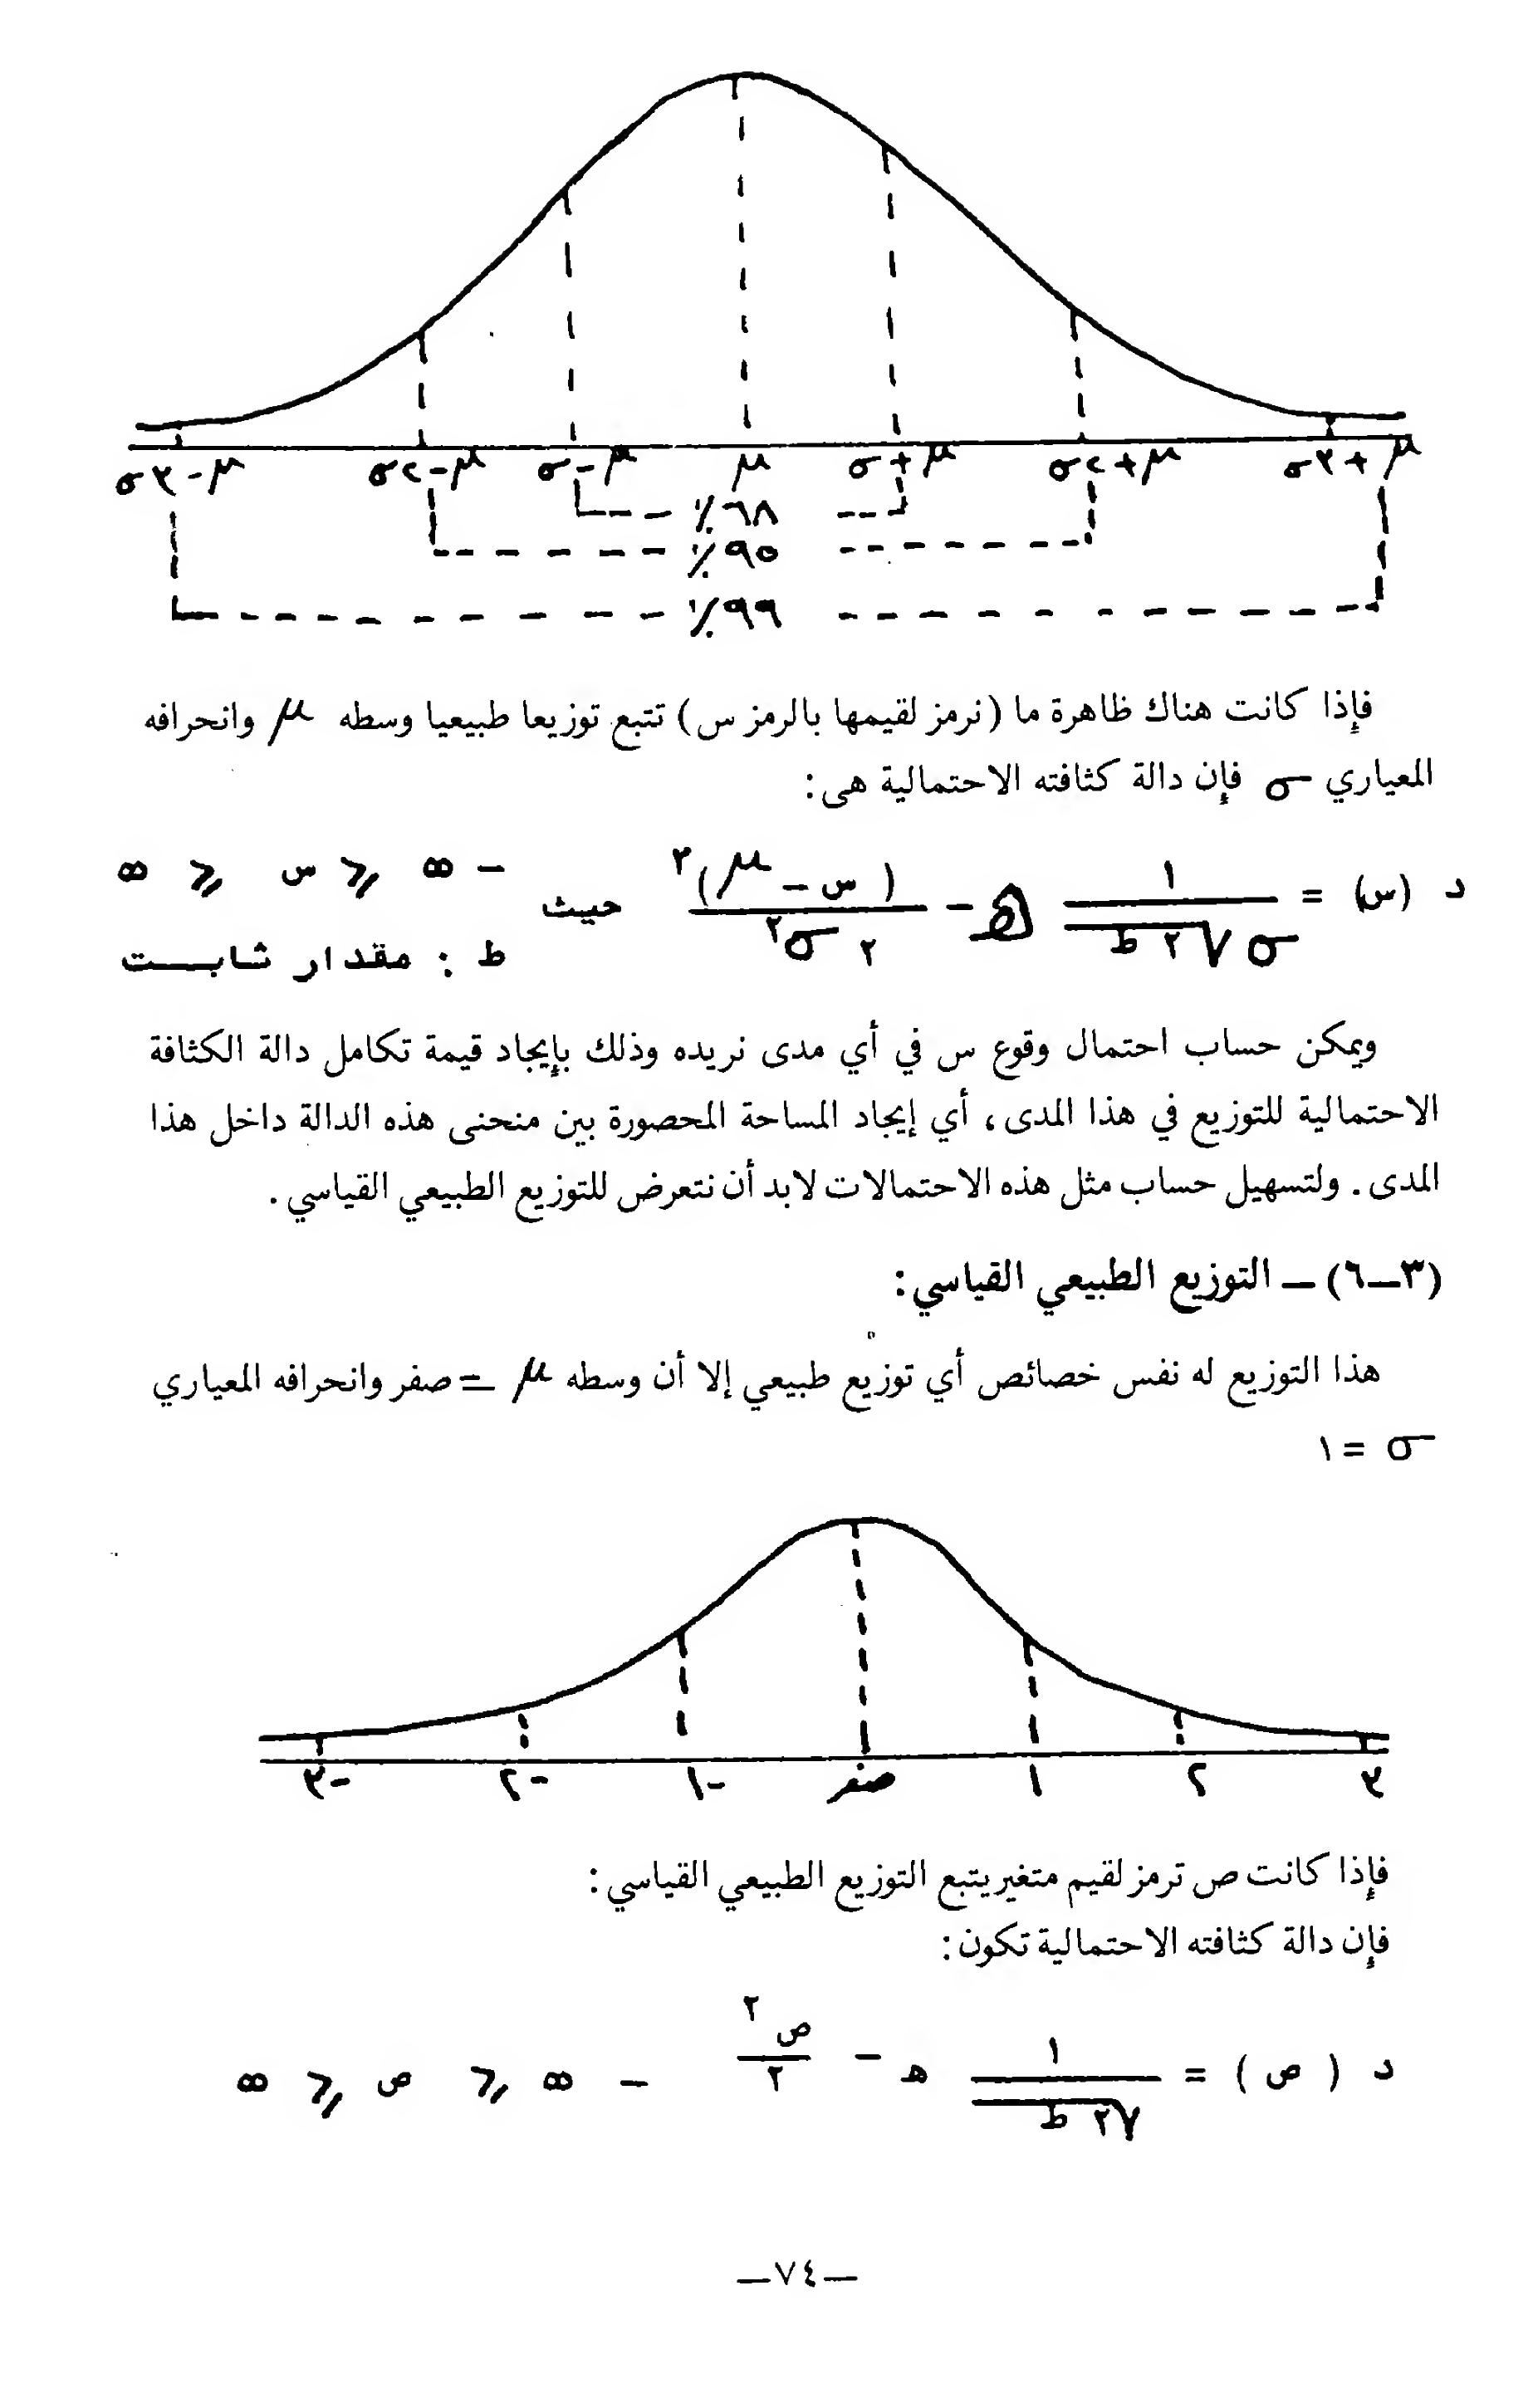 μ + ٣σ μ + ٢σ μ + σ μ μ - σ μ - ٢σ μ - ٣σ
٦٨٪
٩٥٪
٩٩٪
فإذا كانت هناك ظاهرة ما (نرمز لقيمها بالرمز س) تتبع توزيعا طبيعيا وسطه μ وانحرافه
المعياري σ فإن دالة كثافته الاحتمالية هى:
د (س) = ١ / σ √٢ ط هـ - (س - μ)٢ / ٢ σ٢ حيث - ∞ ⩽ س ⩽ ∞
ط : مقدار ثابت
ويمكن حساب احتمال وقوع س في أي مدى نريده وذلك بإيجاد قيمة تكامل دالة الكثافة
الاحتمالية للتوزيع في هذا المدى، أي إيجاد المساحة المحصورة بين منحنى هذه الدالة داخل هذا
المدى. ولتسهيل حساب مثل هذه الاحتمالات لابد أن نتعرض للتوزيع الطبيعي القياسي.
(٣–٦) – التوزيع الطبيعي القياسي:
هذا التوزيع له نفس خصائص أي توزيع طبيعي إلا أن وسطه μ = صفر وانحرافه المعياري
σ = ١
٣ ٢ ١ صفر -١ -٢ -٣
فإذا كانت ص ترمز لقيم متغير يتبع التوزيع الطبيعي القياسي:
فإن دالة كثافته الاحتمالية تكون:
د ( ص ) = ١ / √٢ ط هـ - ص٢ / ٢ - ∞ ⩽ ص ⩽ ∞
–٧٤–